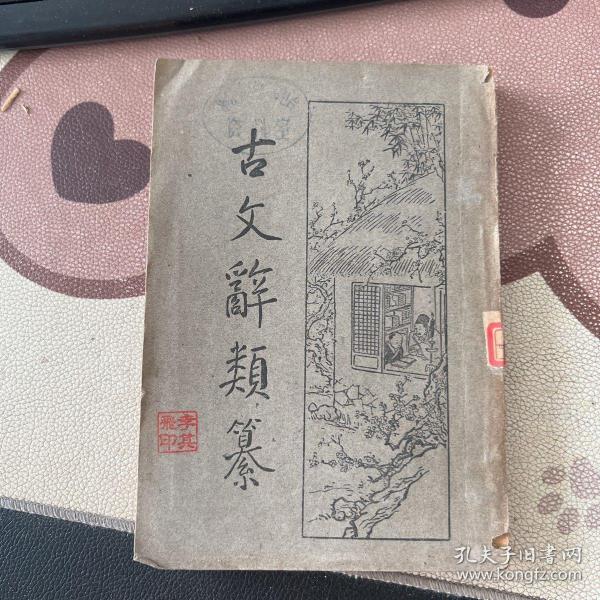 古文辭類纂
李其
飛印
孔夫子旧书网
www.kongfz.com